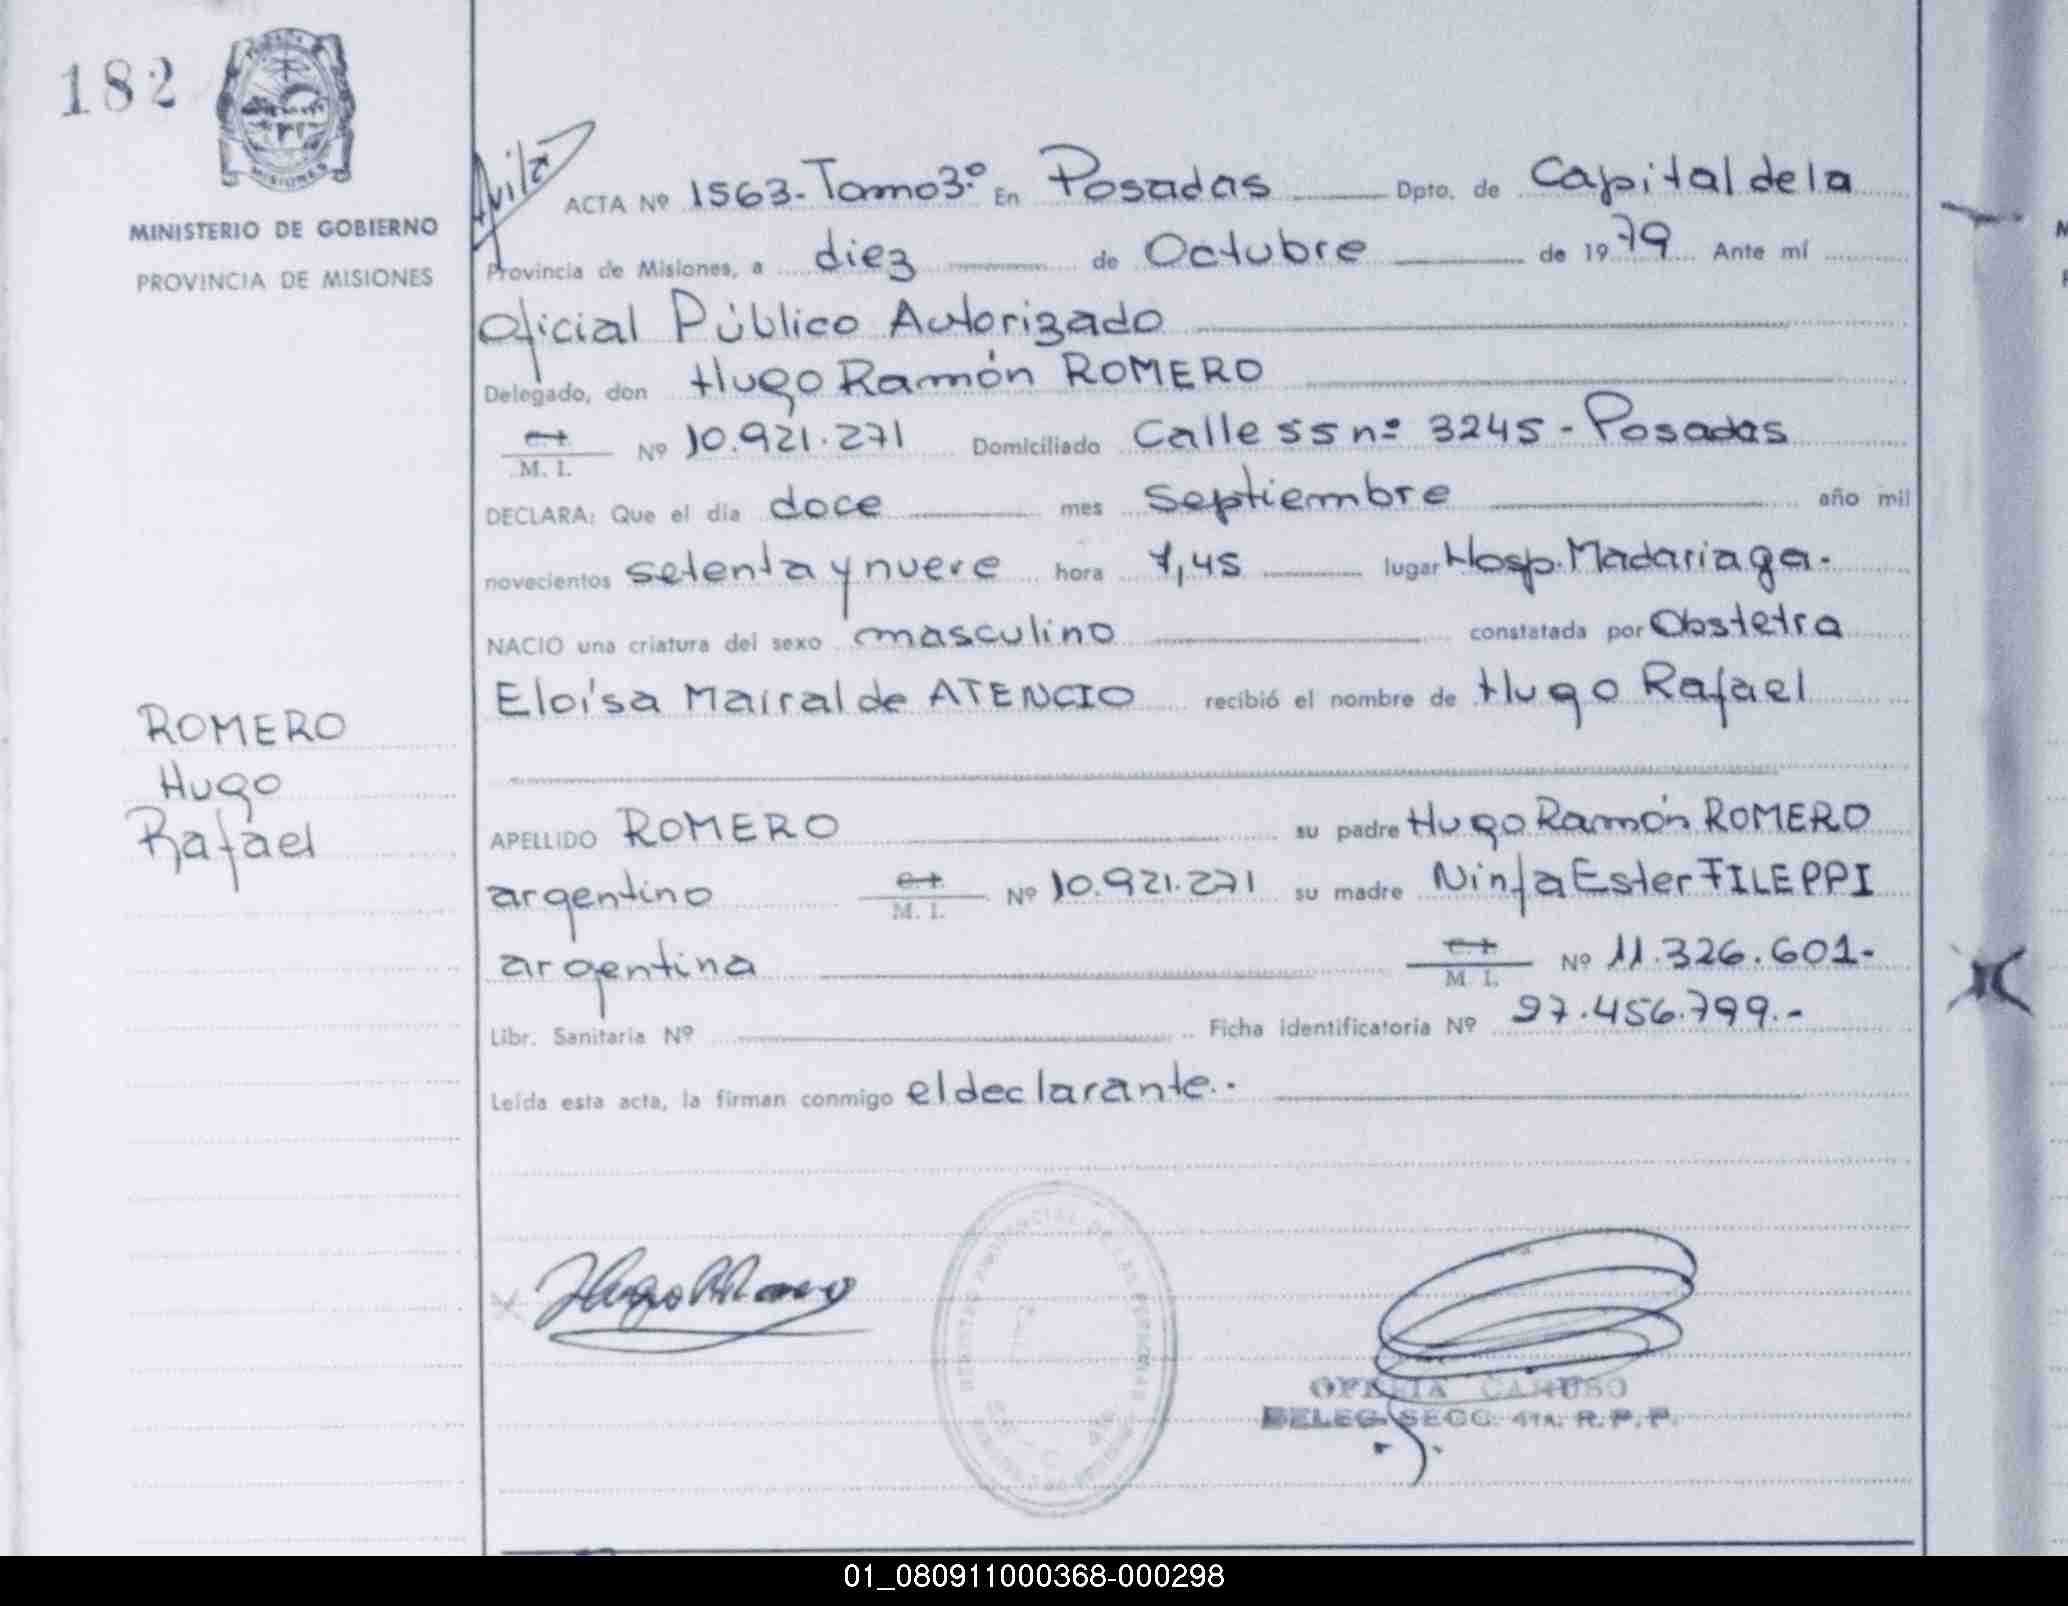 182
MISIONES
MINISTERIO DE GOBIERNO
PROVINCIA DE MISIONES
Avila
ACTA Nº 1563-Tomo3º En Posadas Dpto. de Capital de la
Provincia de Misiones, a diez de Octubre de 1979 Ante mí
Oficial Público Autorizado
Delegado, don Hugo Ramón ROMERO
C.I. M. I. Nº 10.921.271 Domiciliado Calle 55 nº 3245 - Posadas
DECLARA: Que el día doce mes septiembre año mil
novecientos setenta y nueve hora 7,45 lugar Hosp. Madariaga.
NACIO una criatura del sexo masculino constatada por Obstetra
Eloísa Mairal de ATENCIO recibió el nombre de Hugo Rafael
ROMERO
Hugo
Rafael
APELLIDO ROMERO su padre Hugo Ramón ROMERO
argentino C.I. M. I. Nº 10.921.271 su madre Ninfa Ester FILEPPI
argentina C.I. M. I. Nº 11.326.601-
Libr. Sanitaria Nº Ficha identificatoria Nº 27.456.799.-
Leída esta acta, la firman conmigo el declarante.-
Hugo R Romero
OFELIA CARUSO
DELEG. SECC. 4TA. R.P.P.
01_080911000368-000298